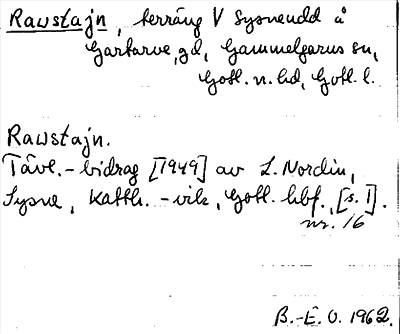 Rawstajn, terräng V Sysneudd å
Gartarve, gd, Gammelgarns sn,
Gotl. n. hd, Gotl. l.
Rawstajn.
Tävl. - bidrag [1949] av L. Nordin,
Sysne, Katth. - vik, Gotl. hbf., [s. 1].
nr. 16
B.-E. O. 1962.